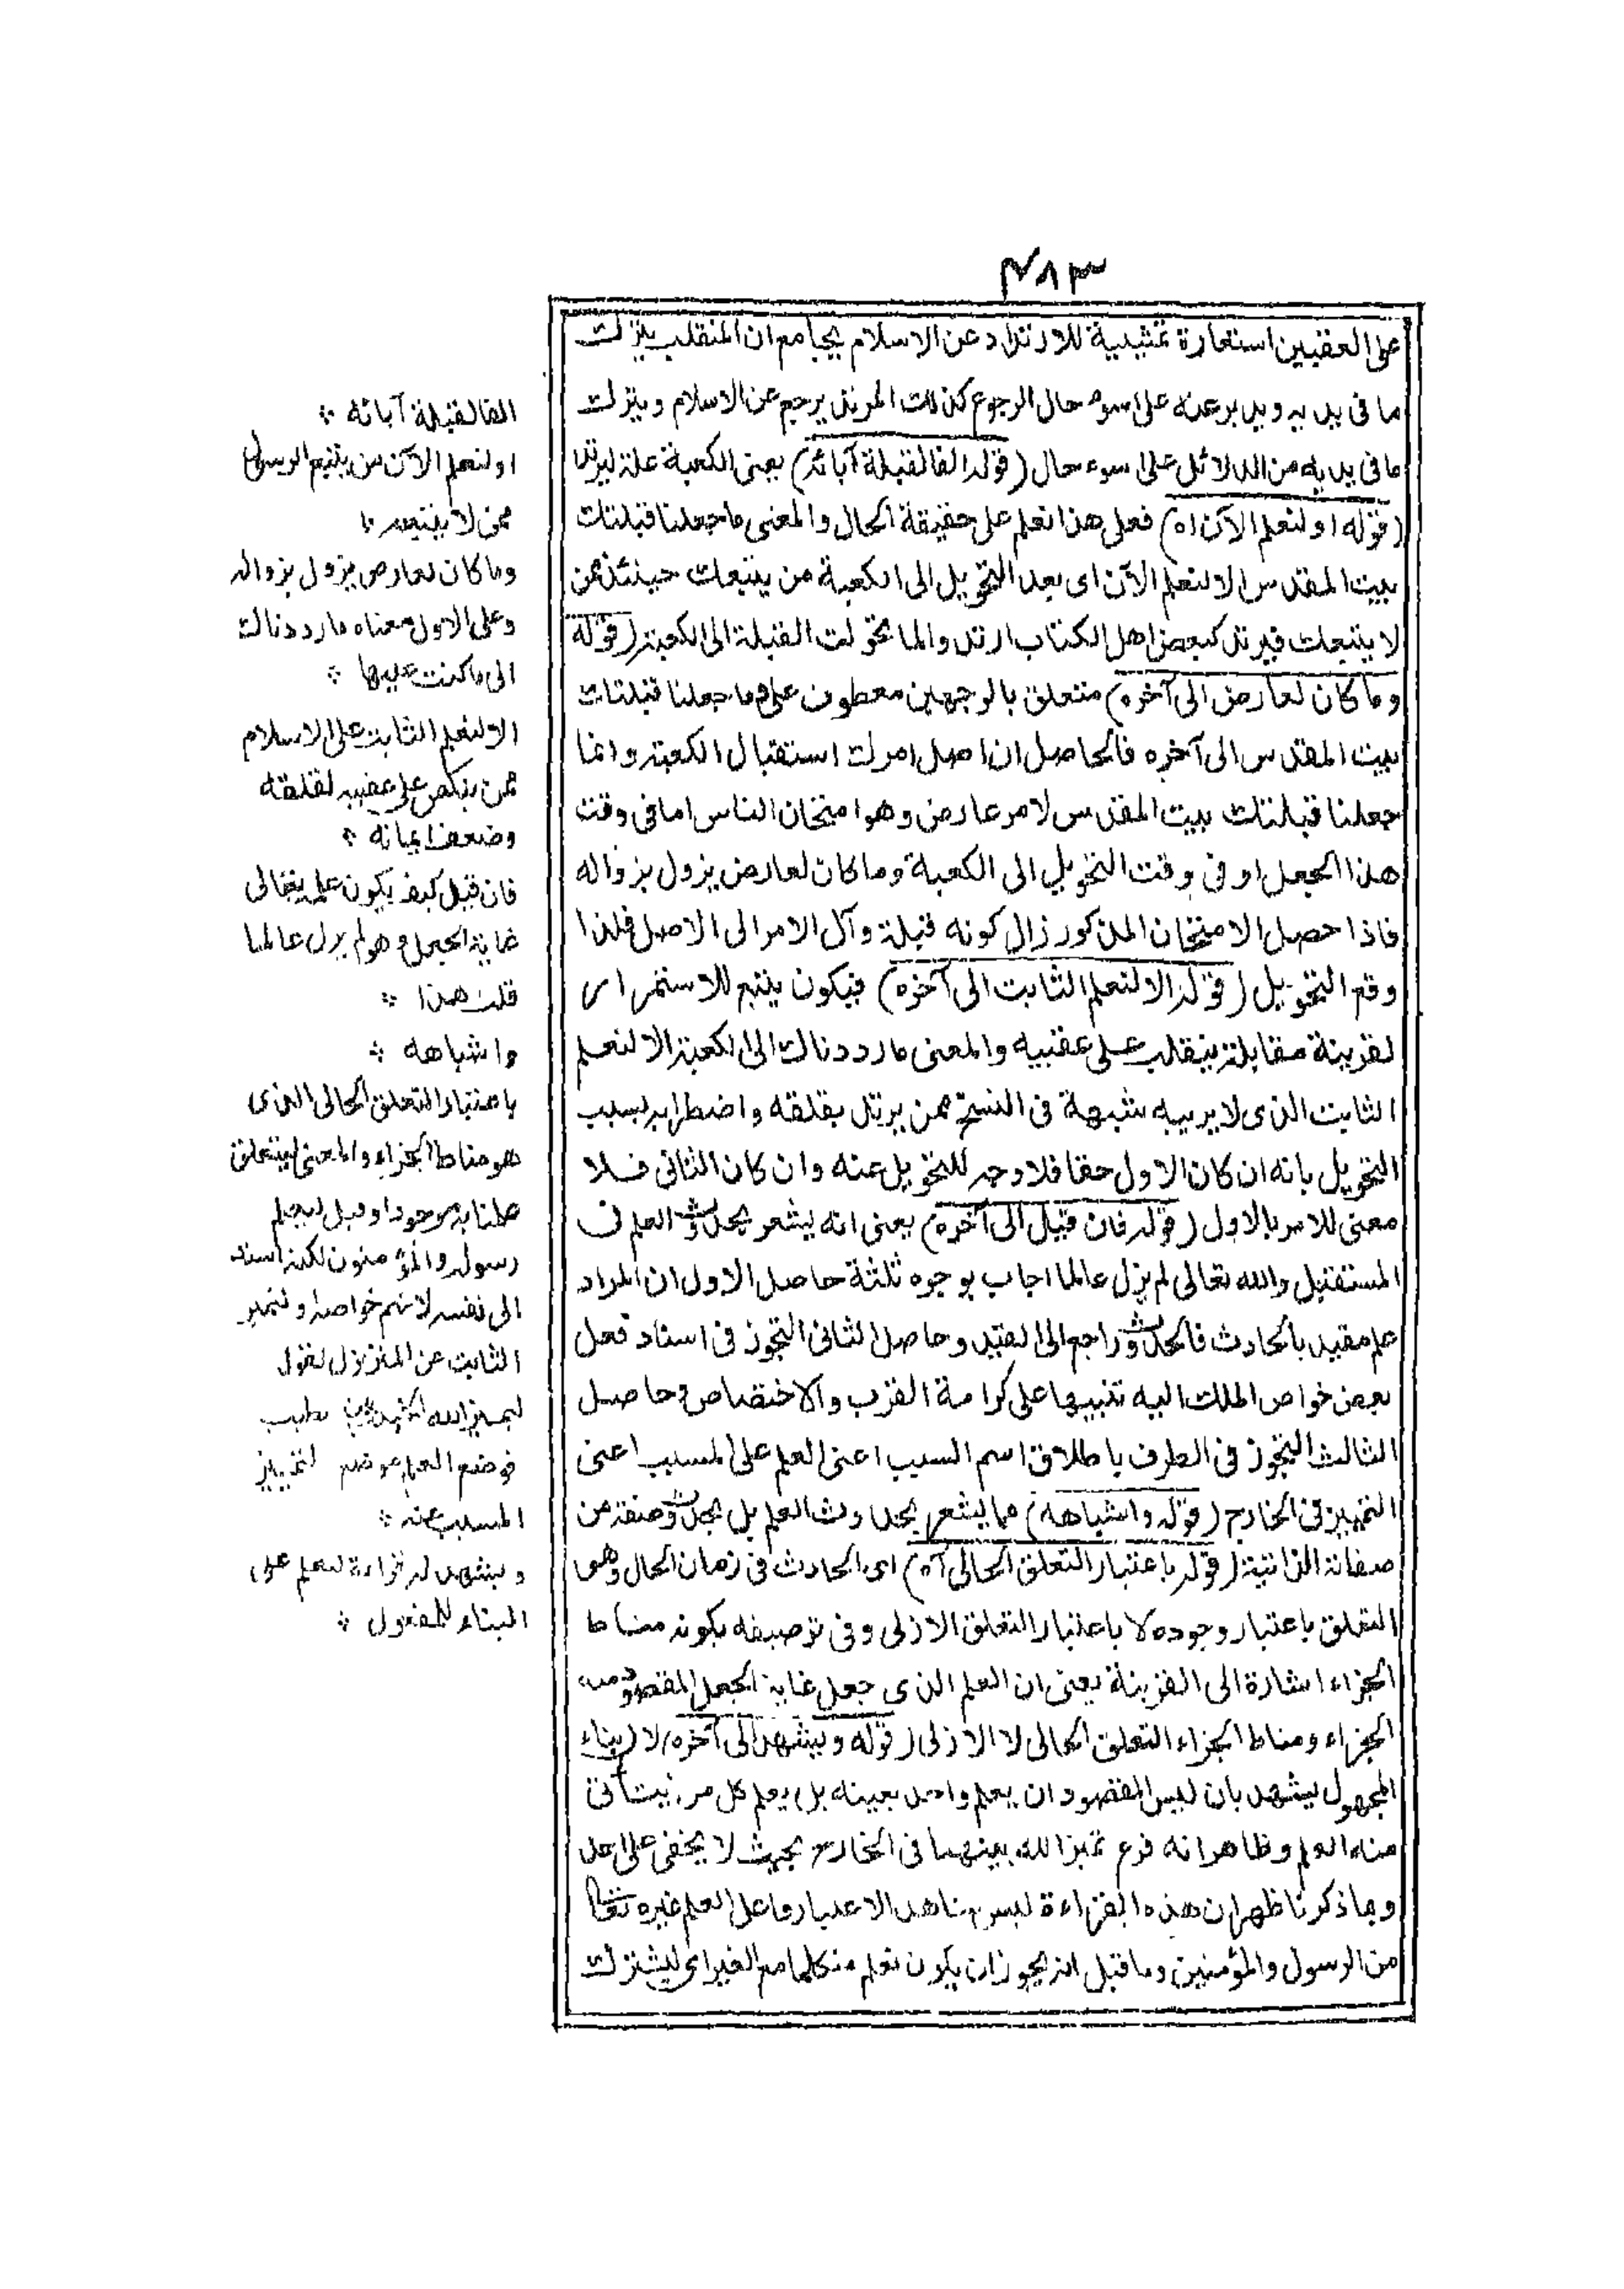 ٤٨٣
على العقبين استعارة تمثيلية للارتداد عن الاسلام بجامع ان المنقلب يترك
ما فى يديه ويدبر عنه على اسوء حال الرجوع كذلك المرتد يرجع عن الاسلام ويترك
ما فى يديه من الدلائل على اسوء حال (قوله الفا لقبلة آبائه) يعنى الكعبة علة ليرتد
(قوله او لنعلم الآن اه) فعلى هذا نعلم على حقيقة الحال والمعنى ما جعلنا قبلتك
بيت المقدس الا لنعلم الآن اى بعد التحويل الى الكعبة من يتبعك حينئذ ممن
لا يتبعك فيرتد كبعض اهل الكتاب ارتدوا لما تحولت القبلة الى الكعبة (قوله
وما كان لعارض الى آخره) متعلق بالوجهين معطوف على وما جعلنا قبلتك
بيت المقدس الى آخره فالحاصل ان اصل امرك استقبال الكعبة وانما
جعلنا قبلتك بيت المقدس لامر عارض وهو امتحان الناس اما فى وقت
هذا الجعل او فى وقت التحويل الى الكعبة وما كان لعارض يزول بزواله
فاذا حصل الامتحان المذكور زال كونه قبلة وآل الامر الى الاصل فلذا
وقع التحويل (قوله الا لنعلم الثابت الى آخره) فيكون يتبع للاستمرار
لقرينة مقابلة ينقلب على عقبيه والمعنى ما رددناك الى الكعبة الا لنعلم
الثابت الذى لا يريبه شبهة فى النسخ ممن يرتد بقلقه واضطرابه بسبب
التحويل بانه ان كان الاول حقا فلا وجه للتحويل عنه وان كان الثانى فلا
معنى للامر بالاول (قوله فان قيل الى آخره) يعنى انه يشعر بحدوث العلم فى
المستقبل والله تعالى لم يزل عالما اجاب بوجوه ثلثة حاصل الاول ان المراد
علم مقيد بالحادث فالحدوث راجع الى القيد وحاصل الثانى التجوز فى اسناد فعل
بعض خواص الملك اليه تنبيها على كرامة القرب والاختصاص وحاصل
الثالث التجوز فى الطرف باطلاق اسم السبب اعنى العلم على المسبب اعنى
التمييز فى الخارج (قوله واشباهه) مما يشعر بحدوث العلم بل بحدوث صفة من
صفاته الذاتية (قوله باعتبار التعلق الحالى آه) اى الحادث فى زمان الحال وهو
التعلق باعتبار وجوده لا باعتبار التعلق الازلى وفى توصيفه بكونه مناط
الجزاء اشارة الى القرينة يعنى ان العلم الذى جعل غاية الجعل المقصود منه
الجزاء ومناط الجزاء التعلق الحالى لا الازلى (قوله ويشهد الى آخره) لا بناء
المجهول يشهد بان ليس المقصود ان يعلم واحد بعينه بل يعلم كل من يتأتى
منه العلم وظاهر انه فرع تميز الله بينهما فى الخارج بحيث لا يخفى على احد
وبما ذكرنا ظهر ان هذه القراءة ليس شاهد الاعتبار فاعل العلم غيره تعالى
من الرسول والمؤمنين وما قيل انه يجوز ان يكون نعلم متكلما مع الغير اى ليشترك
الفا لقبلة آبائه
او لنعلم الآن من يتبع الرسول
ممن لا يتبعه
وما كان لعارض يزول بزواله
وعلى الاول معناه ما رددناك
الى ما كنت عليها
الا لنعلم الثابت على الاسلام
ممن ينكص على عقبيه لقلقه
وضعف ايمانه
فان قيل كيف يكون علمه تعالى
غاية الجعل وهو لم يزل عالما
قلت هذا
واشباهه
باعتبار التعلق الحالى الذى
هو مناط الجزاء والمعنى ليتعلق
علمنا به موجودا وقيل ليعلم
رسوله والمؤمنون لكنه اسند
الى نفسه لانهم خواصه او لتميز
الثابت عن المتزلزل لقوله
ليميز الله الخبيث من الطيب
فوضع العلم موضع التمييز
المسبب عنه
ويشهد له قراءة ليعلم على
البناء للمفعول